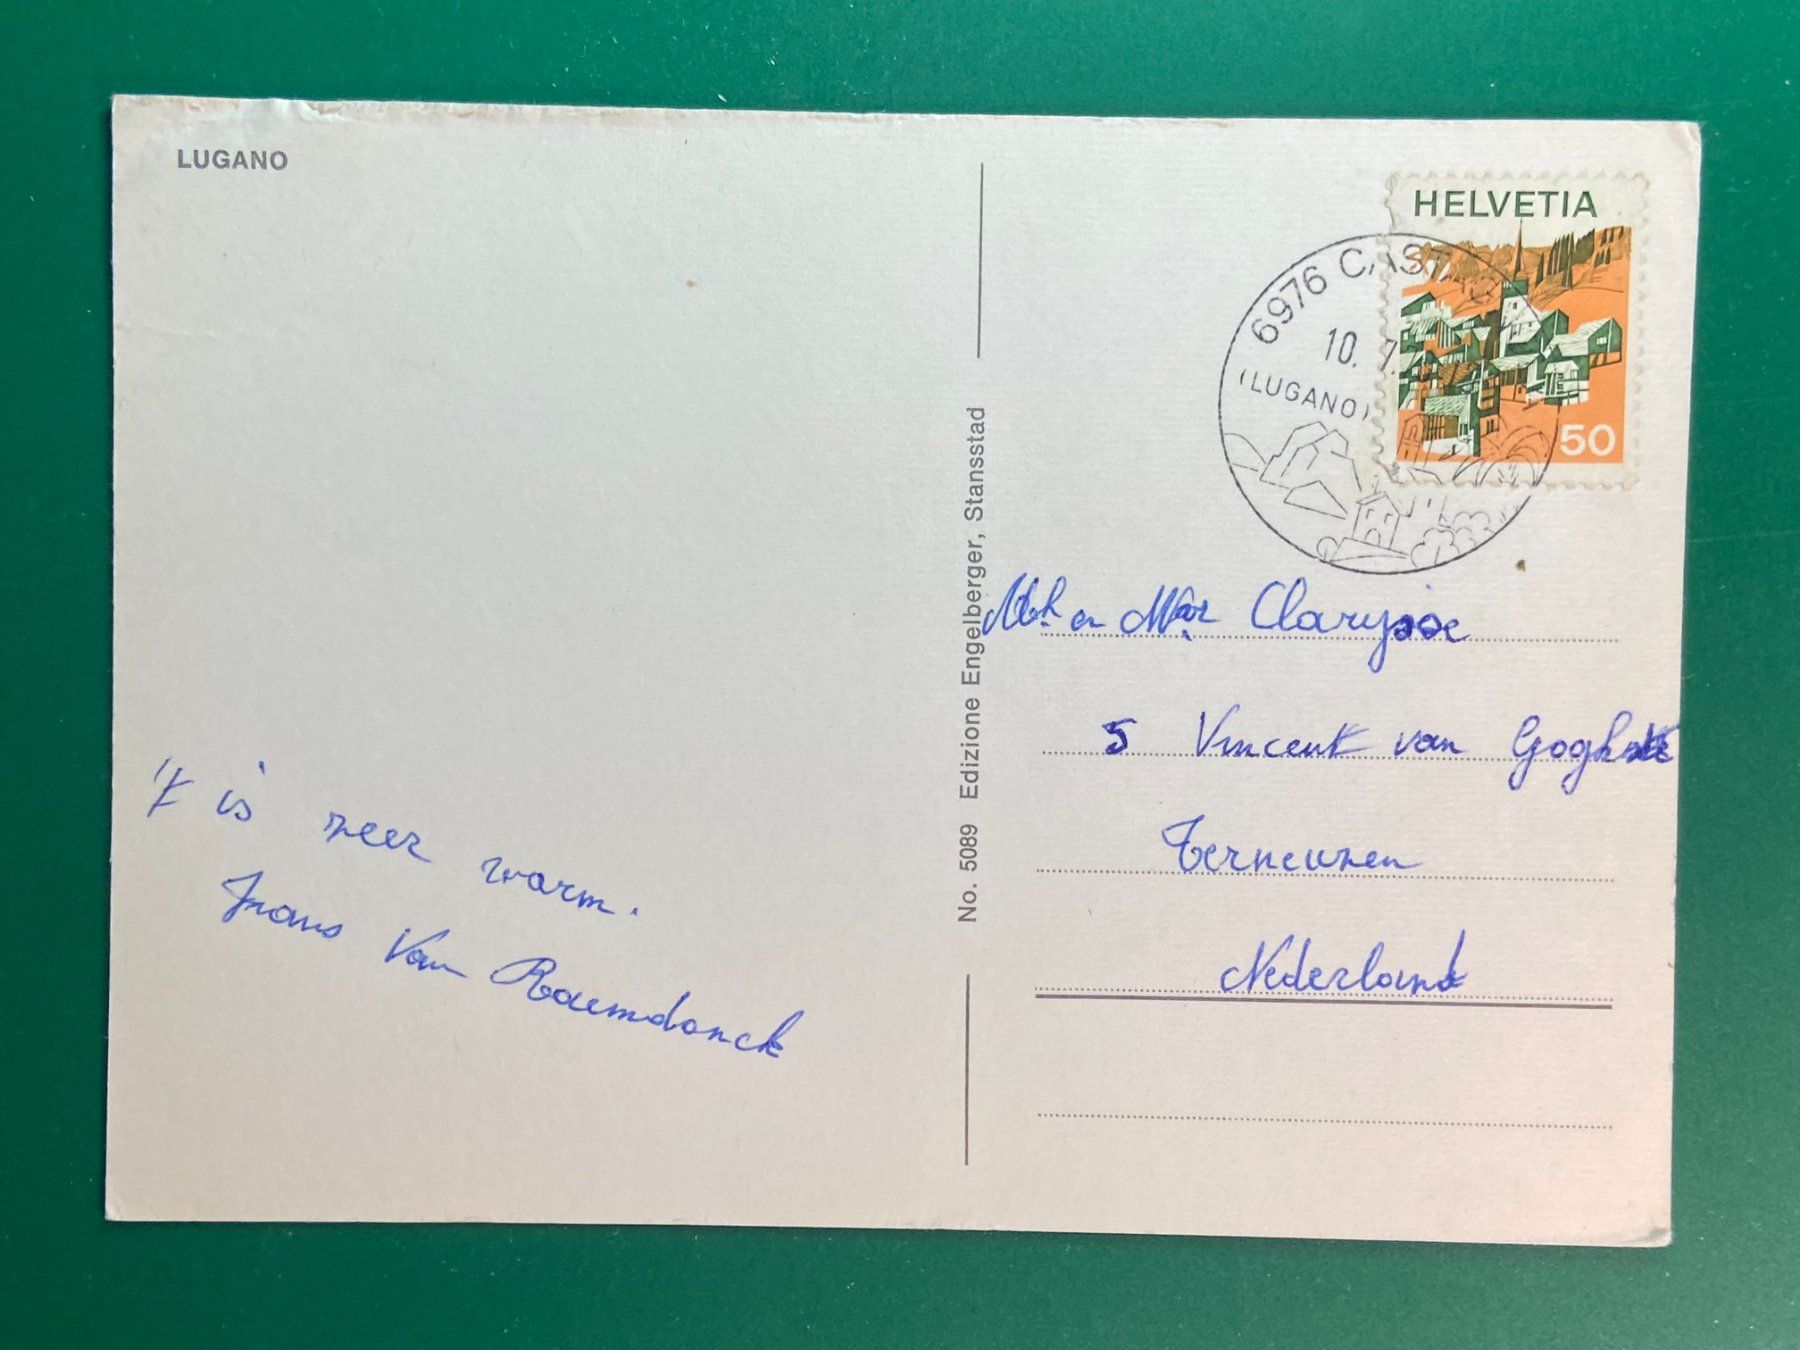 LUGANO
HELVETIA
50
6976 CASTAG
10. 7.
(LUGANO)
No. 5089 Edizione Engelberger, Stansstad
Mh. en Mvr Clarysse
5 Vincent van Gogh
Terneuzen
Nederland
't is zeer warm.
Frans Van Raemdonck